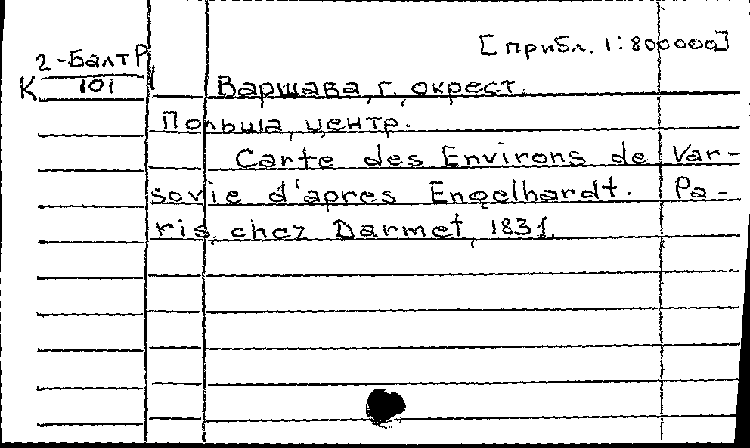 [прибл. 1:800000]
2-БалтР
К 101
Варшава, г. окрест.
Польша, центр.
Carte des Environs de Var-
sovie d'apres Engelhardt. Pa-
ris, chez Darmet, 1831.